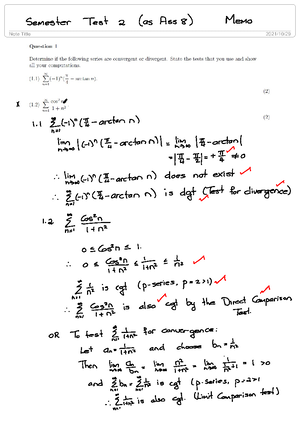 Semester Test 2 (as Ass 8) Memo
Note Title
2021/10/25
Question 1
Determine if the following series are convergent or divergent. State the tests that you use and show
all your computations.
(1.1) ∑_{n=1}^∞ (-1)^n (π/4 − arctan n)
(2)
(1.2) ∑_{n=1}^∞ cos² n / (1 + n²)
(2)
1.1 ∑_{n=1}^∞ (-1)^n (π/4 - arctan n)
lim_{n→∞} |(-1)^n (π/4 - arctan n)| = lim_{n→∞} |π/4 - arctan n|
= |π/4 - π/2| = + π/4 ≠ 0
∴ lim_{n→∞} (-1)^n (π/4 - arctan n) does not exist
∴ ∑_{n=1}^∞ (-1)^n (π/4 - arctan n) is dgt (Test for divergence)
1.2 ∑_{n=1}^∞ Cos²n / 1+n²
0 ≤ Cos²n ≤ 1.
∴ 0 ≤ Cos²n / 1+n² ≤ 1/1+n² ≤ 1/n²
∑_{n=1}^∞ 1/n² is cgt (p-series, p=2>1)
∴ ∑_{n=1}^∞ Cos²n / 1+n² is also cgt by the Direct Comparison
Test.
OR To test ∑_{n=1}^∞ 1/1+n² for convergence:
Let aₙ = 1/1+n² and choose bₙ = 1/n²
Then lim_{n→∞} aₙ/bₙ = lim_{n→∞} n²/1+n² = lim_{n→∞} 1/(1/n²+1) = 1 > 0
and ∑_{n=1}^∞ bₙ = ∑_{n=1}^∞ 1/n² is cgt (p-series, p=2>1
∴ ∑_{n=1}^∞ 1/1+n² is also cgt. (Limit Comparison test)